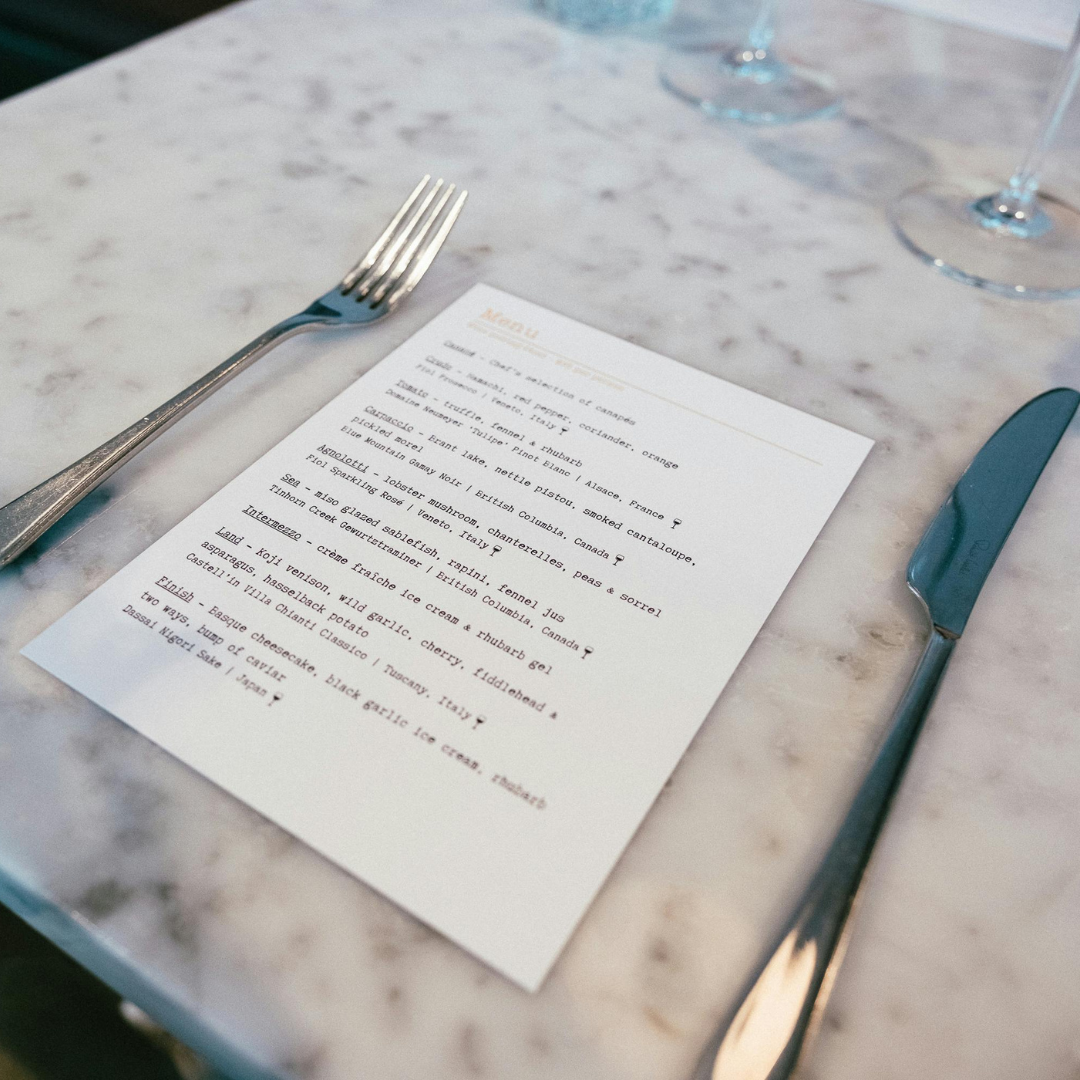 Menu
Canapé - Chef's selection of canapés
Crudo - Hamachi, red pepper, coriander, orange
Fiol Prosecco | Veneto, Italy
Tomato - truffle, fennel & rhubarb
Domaine Neumeyer 'Tulipe' Pinot Blanc | Alsace, France
Carpaccio - Brant lake, nettle pistou, smoked cantaloupe,
pickled morel
Blue Mountain Gamay Noir | British Columbia, Canada
Agnolotti - lobster mushroom, chanterelles, peas & sorrel
Fiol Sparkling Rosé | Veneto, Italy
Sea - miso glazed sablefish, rapini, fennel jus
Tinhorn Creek Gewurtztraminer | British Columbia, Canada
Intermezzo - crème fraîche ice cream & rhubarb gel
Land - Koji venison, wild garlic, cherry, fiddlehead &
asparagus, hasselback potato
Castell'in Villa Chianti Classico | Tuscany, Italy
Finish - Basque cheesecake, black garlic ice cream, rhubarb
two ways, bump of caviar
Dassai Nigori Sake | Japan